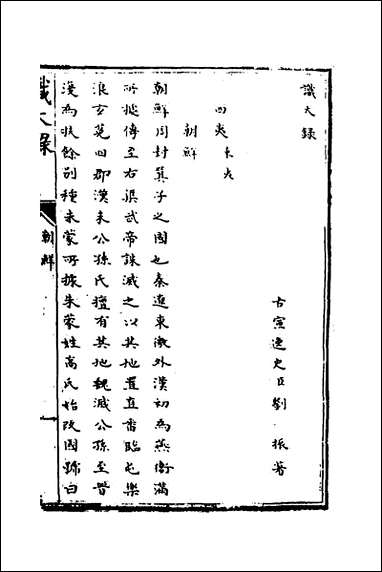 識大錄
古宣逸史臣劉振著
四夷 東夷
朝鮮
朝鮮周封箕子之國也秦遼東徼外漢初為燕衛滿
所據傳至右渠武帝誅滅之以其地置真畨臨屯樂
浪玄菟四郡漢末公孫氏擅有其地魏滅公孫至晉
後為扶餘別種朱蒙所據朱蒙姓高氏始改國號曰
識大錄
朝鮮